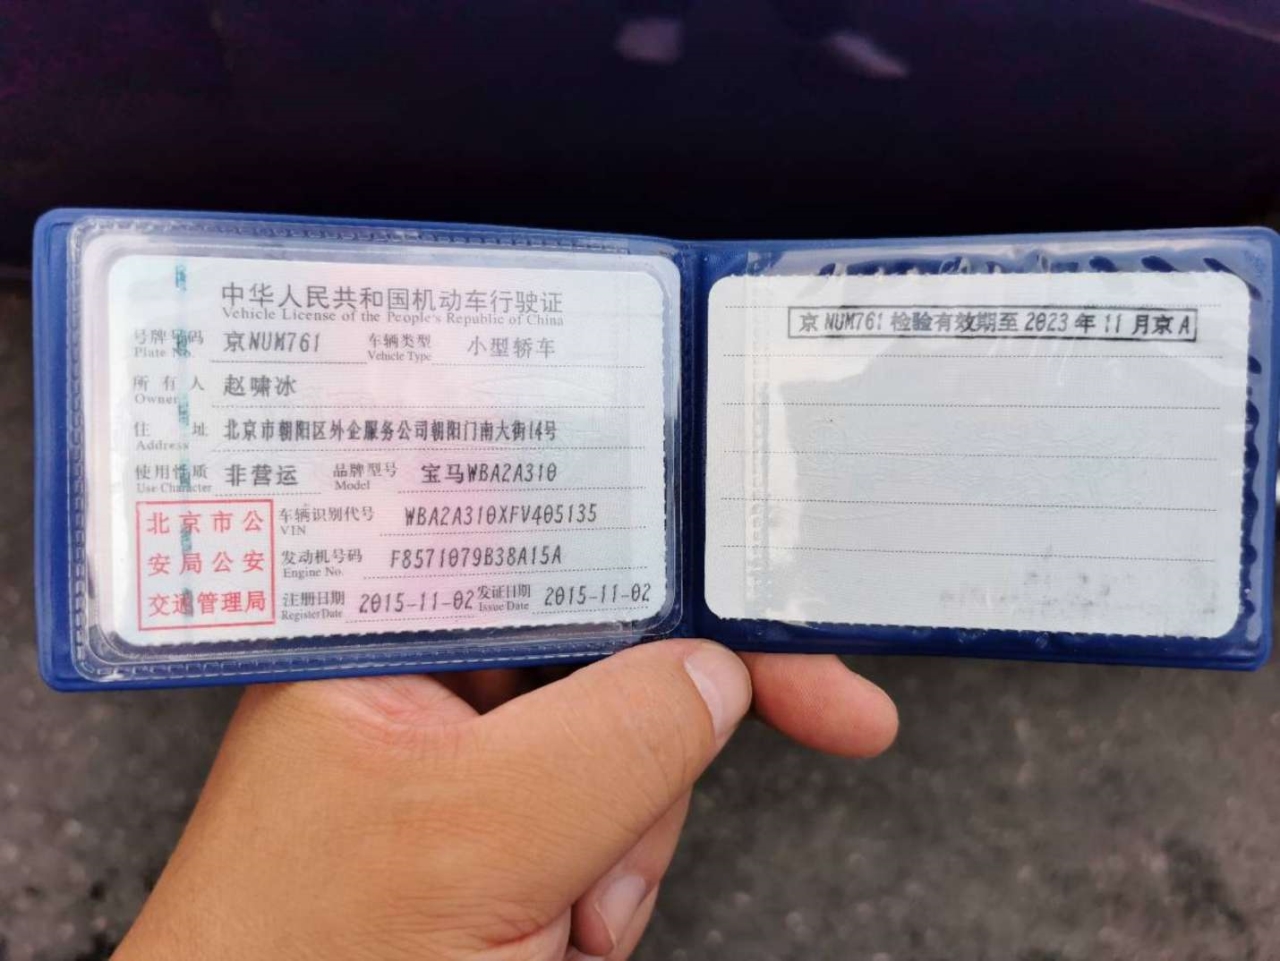 中华人民共和国机动车行驶证
Vehicle License of the People's Republic of China
号牌号码 京NUM761 车辆类型 小型轿车
Plate No. Vehicle Type
所有人 赵啸冰
Owner
住址 北京市朝阳区外企服务公司朝阳门南大街14号
Address
使用性质 非营运 品牌型号 宝马WBA2A310
Use Character Model
北京市公
安局公安
交通管理局
车辆识别代号 WBA2A310XFV405135
VIN
发动机号码 F8571079B38A15A
Engine No.
注册日期 2015-11-02 发证日期 2015-11-02
Register Date Issue Date
京NUM761 检验有效期至 2023 年 11 月京A